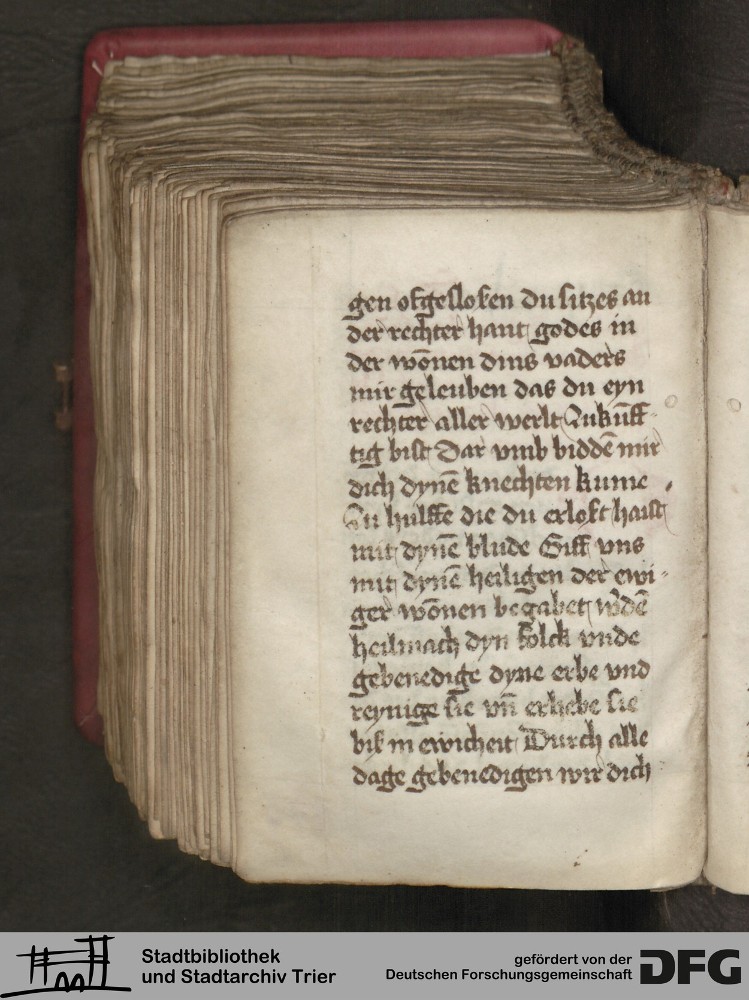 gen ofgesloſen du ſitzes an
der rechter hant godes in
der wōnen dins vaders
mir geleuben das du eyn
rechter aller werlt Zukūff
tig biſt Dar vmb biddē mir
dich dynē knechten kume
Zu hulffe die du erloſt haiſt
mit dynē blude Giff vns
mit dynē heiligen der ewi-
ger wōnen begabet wdē
heilmach dyn folck vnde
gebenedige dyne erbe vnd
reynige ſie vn̄ erhebe ſie
biß in ewicheit Durch alle
dage gebenedigen wir dich
Stadtbibliothek
und Stadtarchiv Trier
gefördert von der
Deutschen Forschungsgemeinschaft
DFG